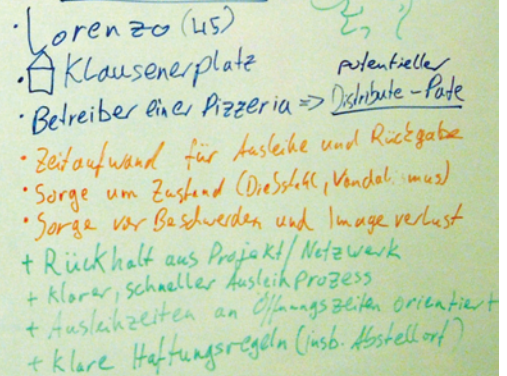 · Lorenzo (45)
· Klausenerplatz
potentieller
· Betreiber einer Pizzeria => Distribute-Pate
· Zeitaufwand für Ausleihe und Rückgabe
· Sorge um Zustand (Diebstahl, Vandalismus)
· Sorge vor Beschwerden und Imageverlust
+ Rückhalt aus Projekt/Netzwerk
+ Klarer, schneller Ausleihprozess
+ Ausleihzeiten an Öffnungszeiten orientiert
+ Klare Haftungsregeln (insb. Abstellort)